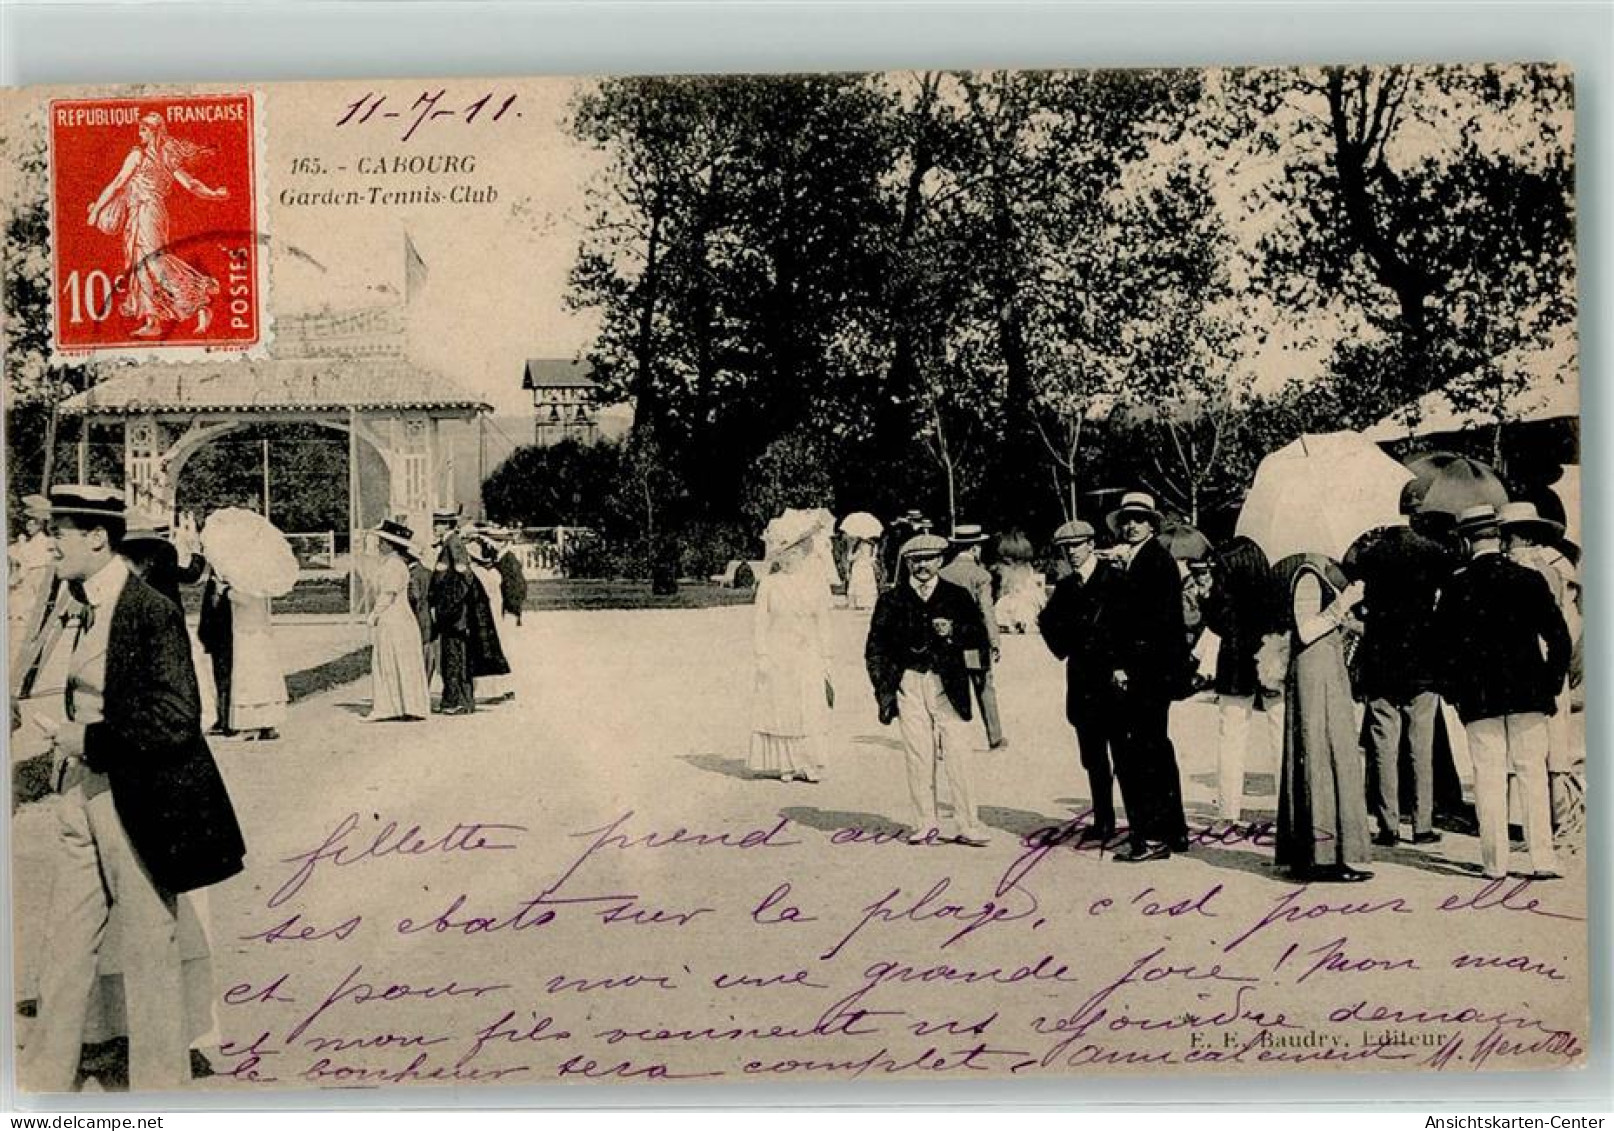 RÉPUBLIQUE FRANÇAISE
10c POSTES
11-7-11.
165. - CABOURG
Garden-Tennis-Club
TENNIS
fillette prend avec
ses ebats sur la plage, c'est pour elle
et pour moi une grande joie! Mon mari
et mon fils viennent ns rejoindre demain
E. E. Baudry, Editeur
le bonheur sera complet, amicalement
Ansichtskarten-Center